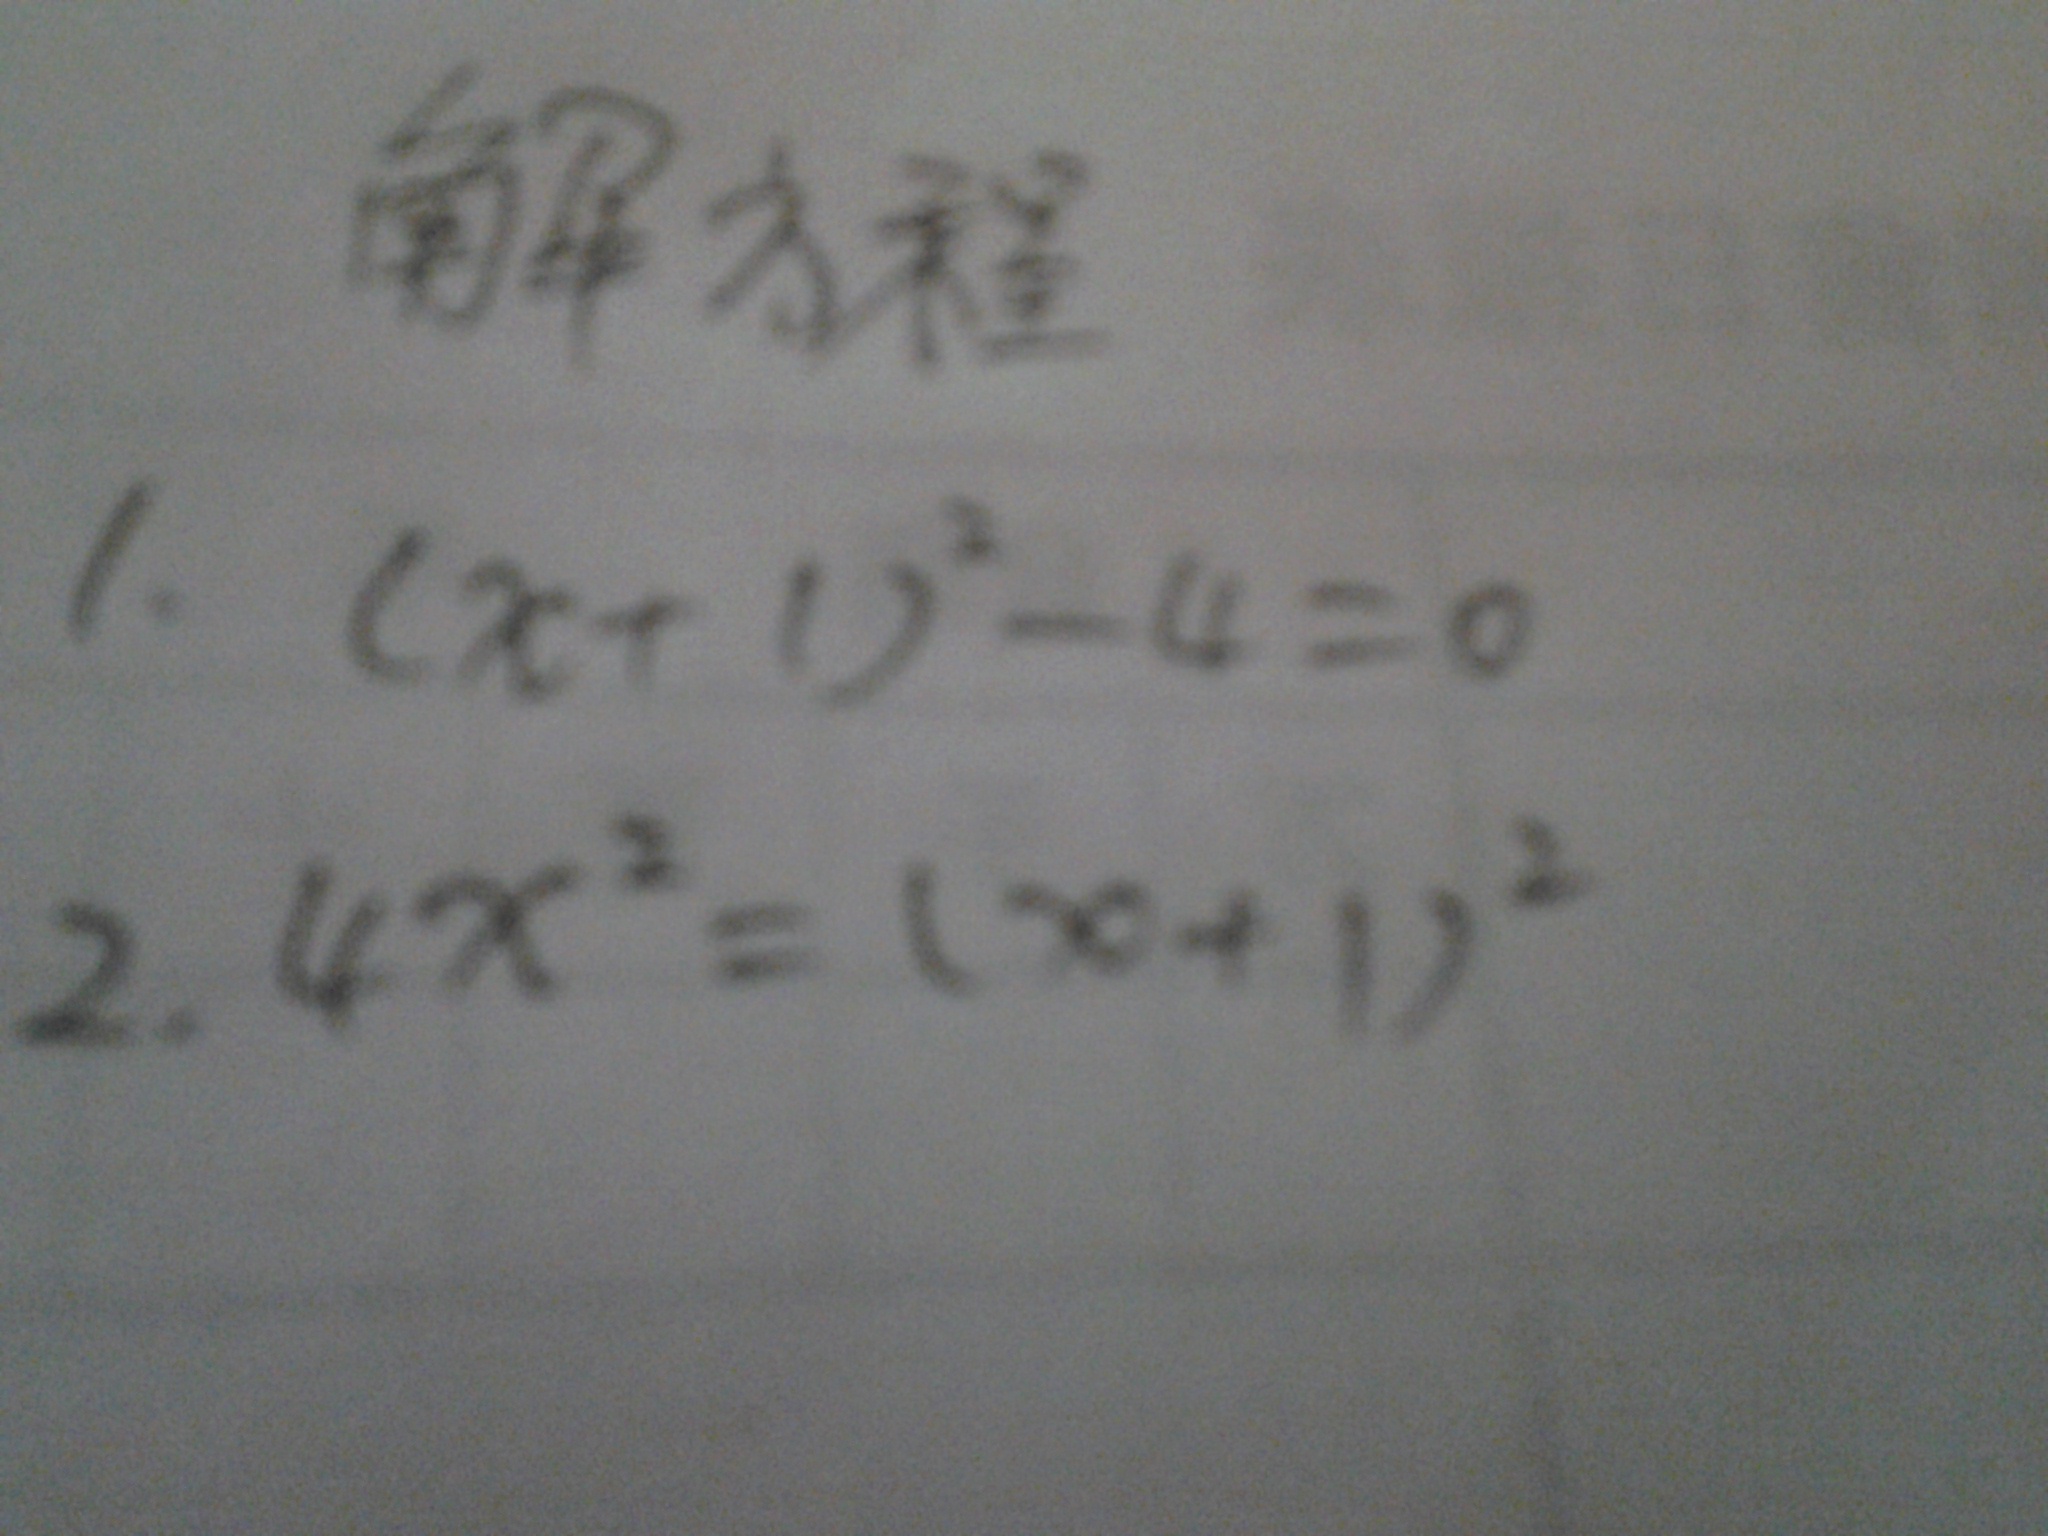 解方程
1. (x+1)²-4=0
2. 4x²=(x+1)²